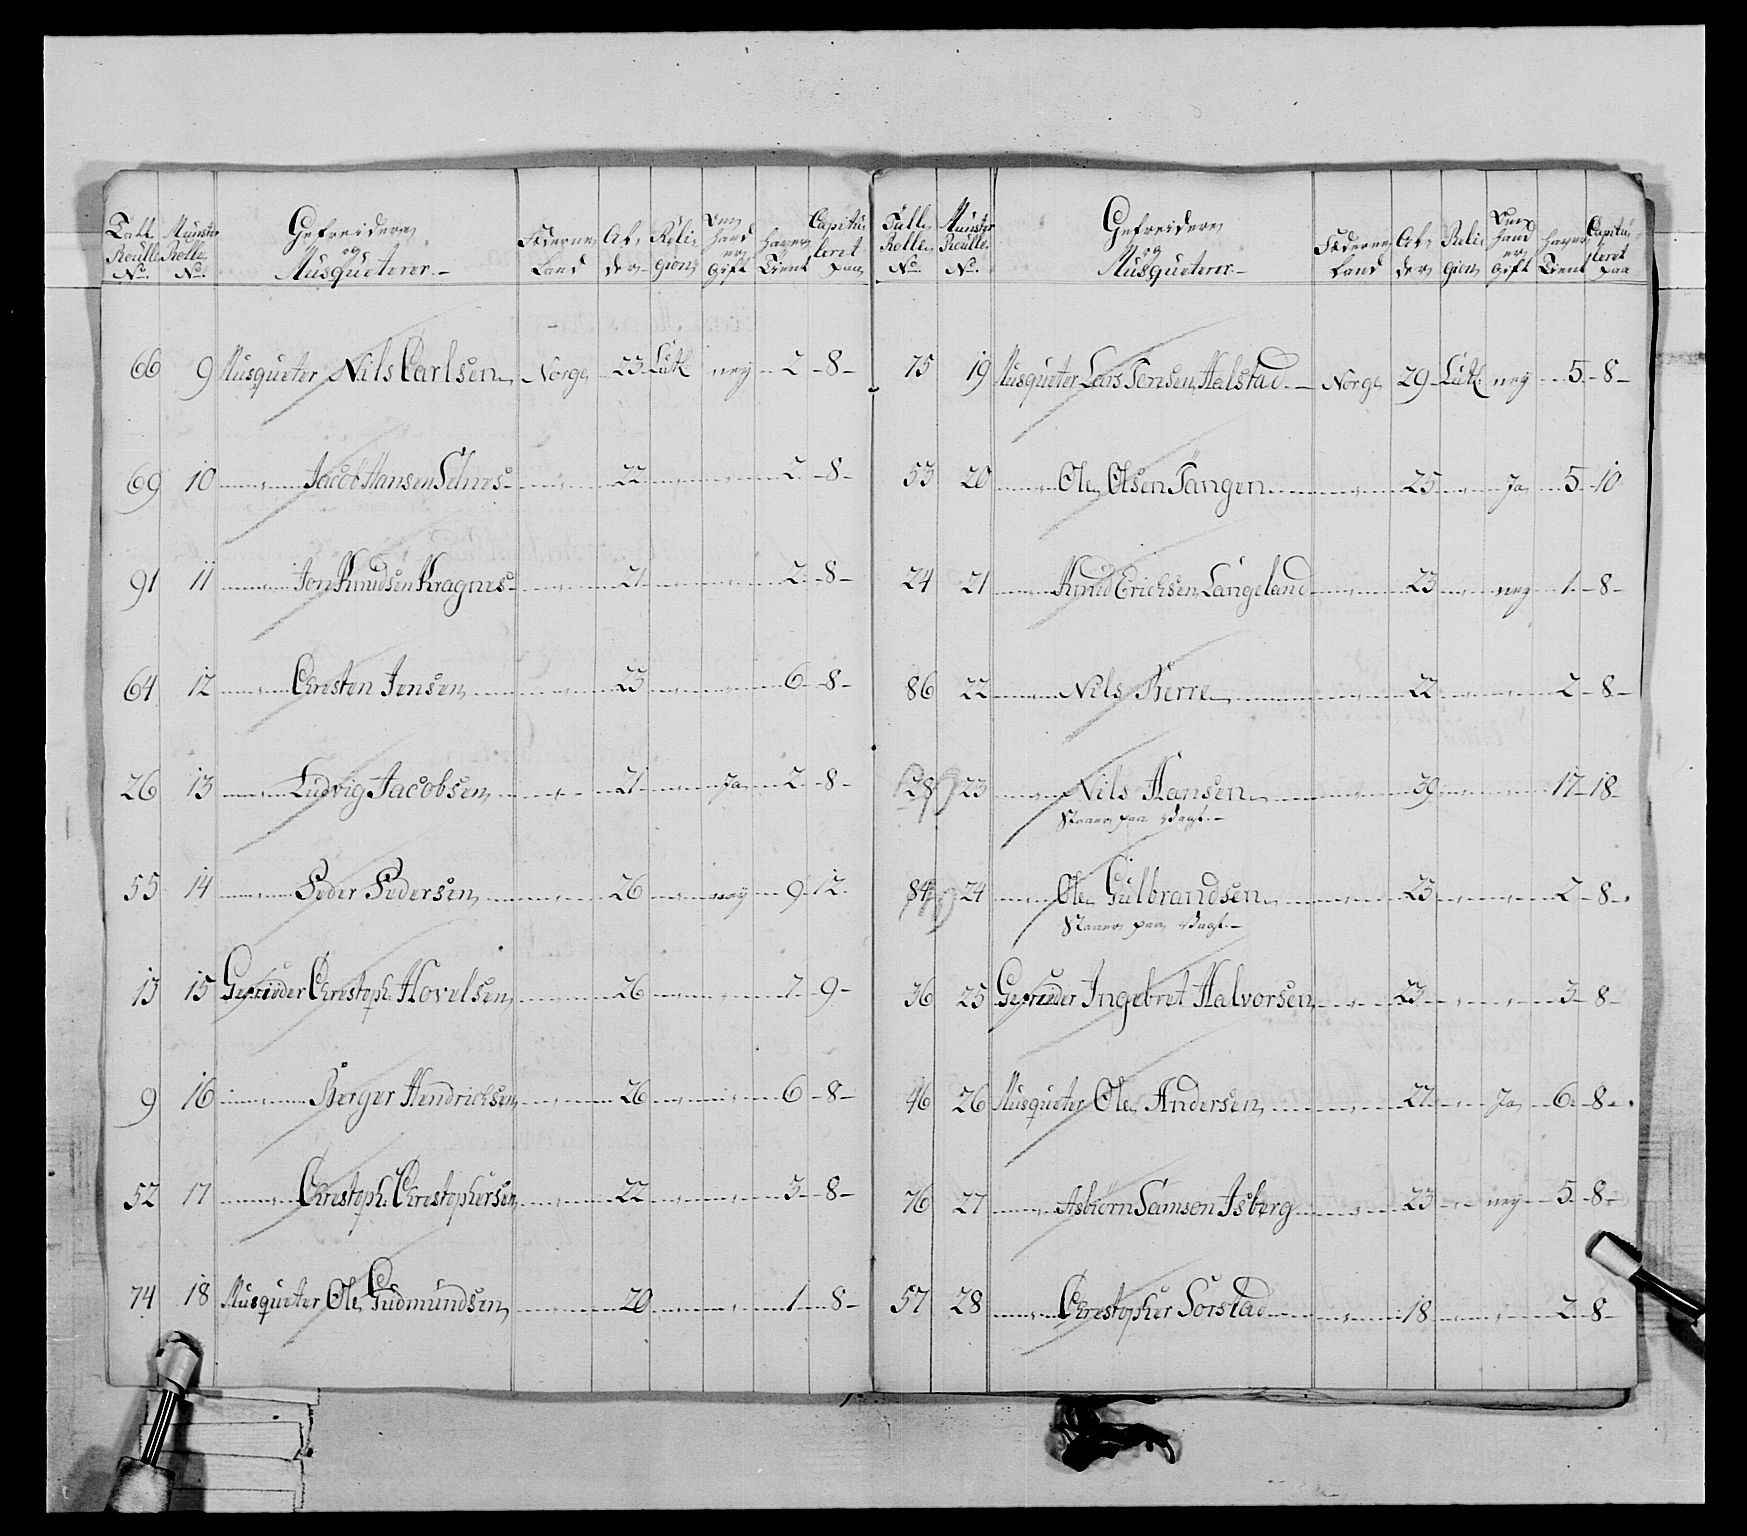 Tall Roulle No. Münster Rolle No. Gefreidere og Musqueterer Føderne Land Alder Religion Om hand er Gift haver Tient Capituleret paa
66 9 Musqueter Nils Carlsen Norge 23 Luth. ney 2 8
69 10 Jacob Hansen Selnes 22 2 8
91 11 Jon Knudsen Kragnes 21 2 8
64 12 Christen Jensen 23 6 8
26 13 Ludvig Jacobsen 21 Ja 2 8
55 14 Peder Pedersen 26 ney 9 12
13 15 Gefreider Christoph. Hovelsen 26 7 9
9 16 Berger Hendrichsen 26 6 8
52 17 Christoph. Christophersen 22 3 8
74 18 Musqueter Ole Gudmundsen 20 1 8
Tall Rolle No. Münster Roulle No. Gefreidere og Musqueterer Føderne Land Alder Religion Om hand er Gift haver Tient Capituleret paa
75 19 Musqueter Lars Jonsen Halstad Norge 29 Luth. ney 5 8
53 20 Ole Olsen Tangen 25 Ja 5 10
24 21 Knud Erichsen Langeland 23 ney 1 8
86 22 Nils Berre 22 2 8
28 23 Nils Hansen 39 17 18
Staaer paa Vagt.
84 24 Ole Gulbrandsen 23 2 8
Staaer paa Vagt.
36 25 Gefreider Ingebret Halvorsen 23 3 8
46 26 Musqueter Ole Andersen 27 Ja 6 8
76 27 Asbiörn Samson Isberg 23 ney 5 8
57 28 Christopher Sorstad 18 2 8